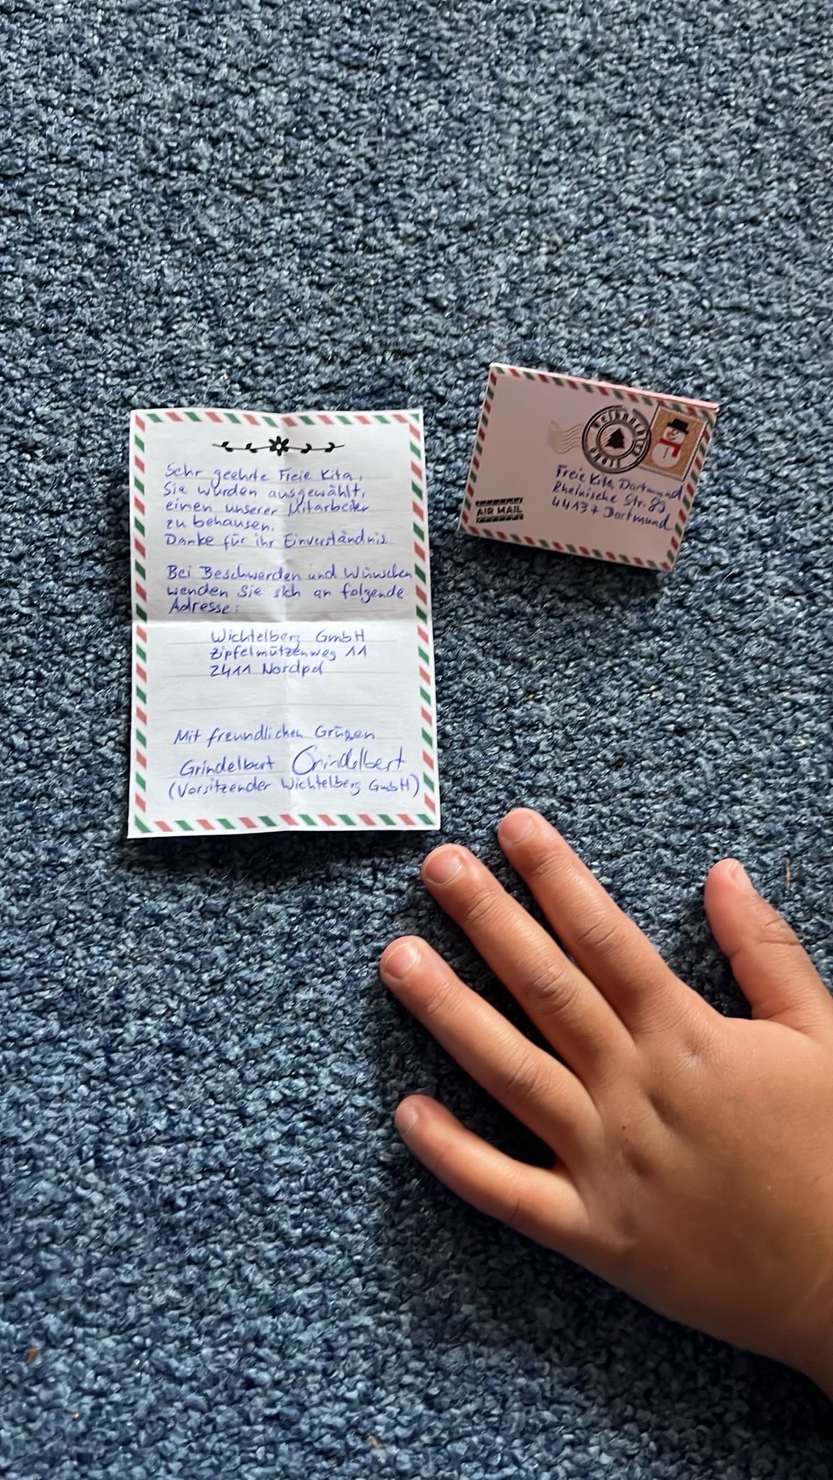 Sehr geehrte Freie Kita,
Sie wurden ausgewählt,
einen unserer Mitarbeiter
zu behausen.
Danke für ihr Einverständnis.
Bei Beschwerden und Wünschen
wenden Sie sich an folgende
Adresse:
Wichtelberg GmbH
Zipfelmützenweg 11
2411 Nordpol
Mit freundlichen Grüßen
Grindelbert Grindelbert
(Vorsitzender Wichtelberg GmbH)
Weihnachts
POST
Freie Kita Dortmund
Rheinische Str. 89
44137 Dortmund
AIR MAIL